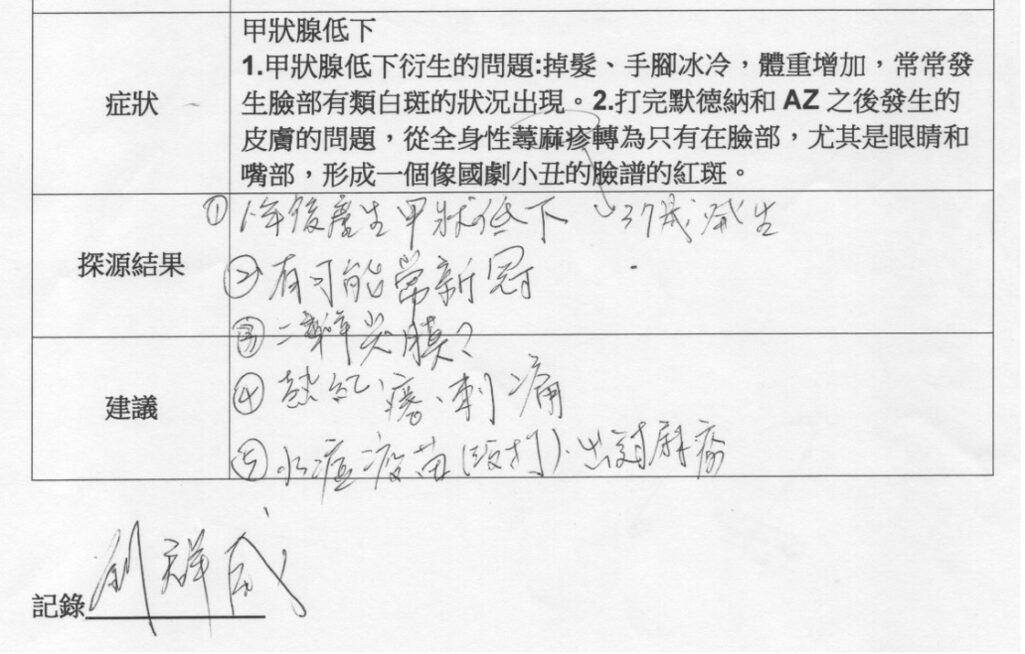 甲狀腺低下
1.甲狀腺低下衍生的問題:掉髮、手腳冰冷，體重增加，常常發
症狀
生臉部有類白斑的狀況出現。2.打完默德納和 AZ 之後發生的
皮膚的問題，從全身性蕁麻疹轉為只有在臉部，尤其是眼睛和
嘴部，形成一個像國劇小丑的臉譜的紅斑。
① 1年後產生甲狀低下 37歲發生
探源結果
② 有可能常新冠
③ 二 尖 膜?
建議
④ 熱紅、癢、刺痛
⑤ 水痘疫苗(打)、出過麻疹
記錄